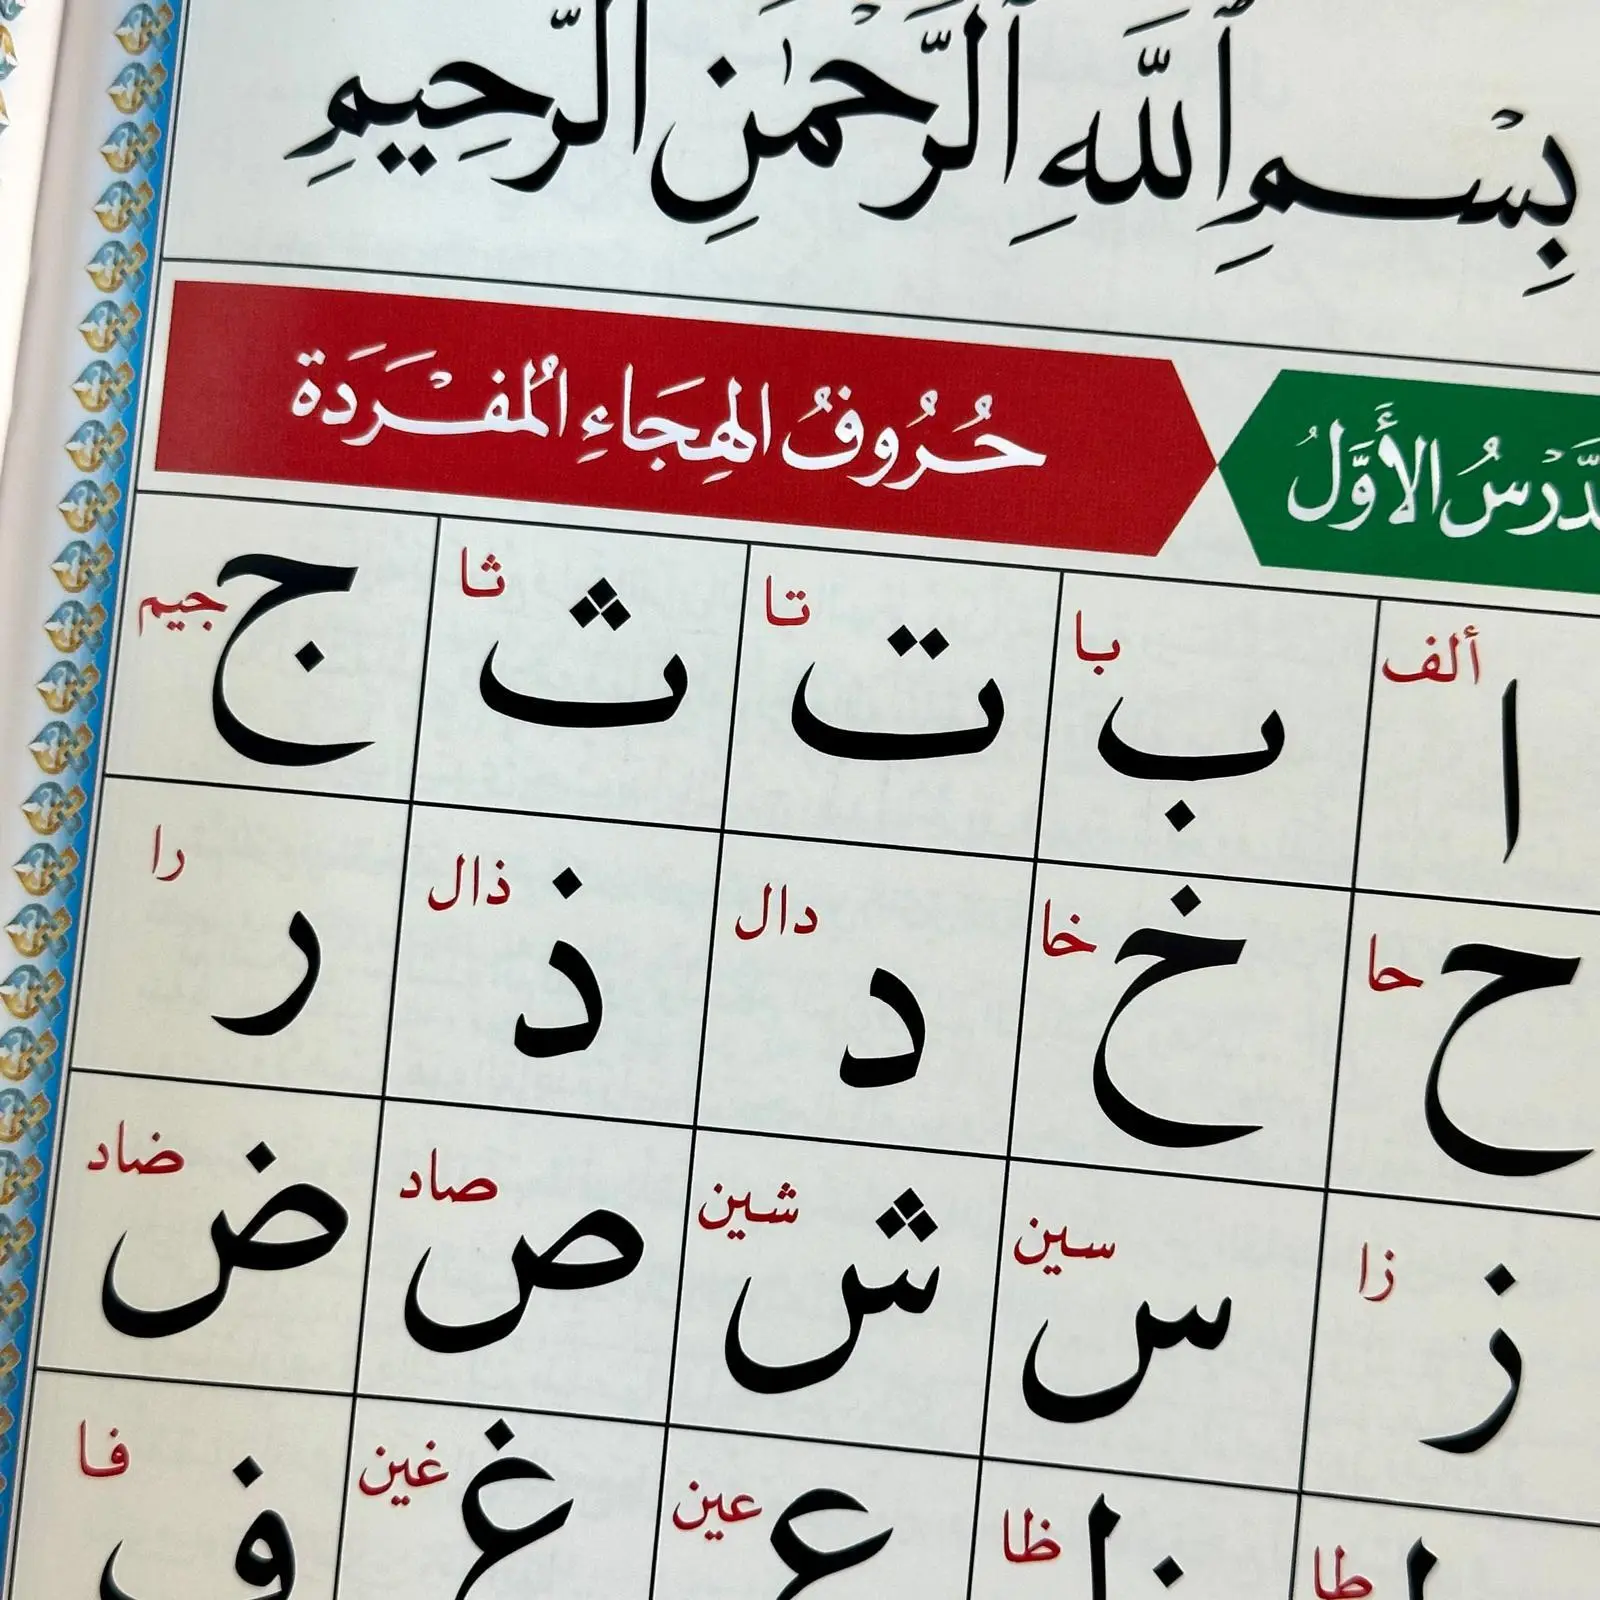 بِسْمِ ٱللَّهِ ٱلرَّحْمَٰنِ ٱلرَّحِيمِ
دَّرْسُ الأَوَّلُ حُرُوفُ الهِجَاءِ المُفْرَدَة
ا ألف ب با ت تا ث ثا ج جيم
ح حا خ خا د دال ذ ذال ر را
ز زا س سين ش شين ص صاد ض ضاد
ط طا ظ ظا ع عين غ غين ف فا